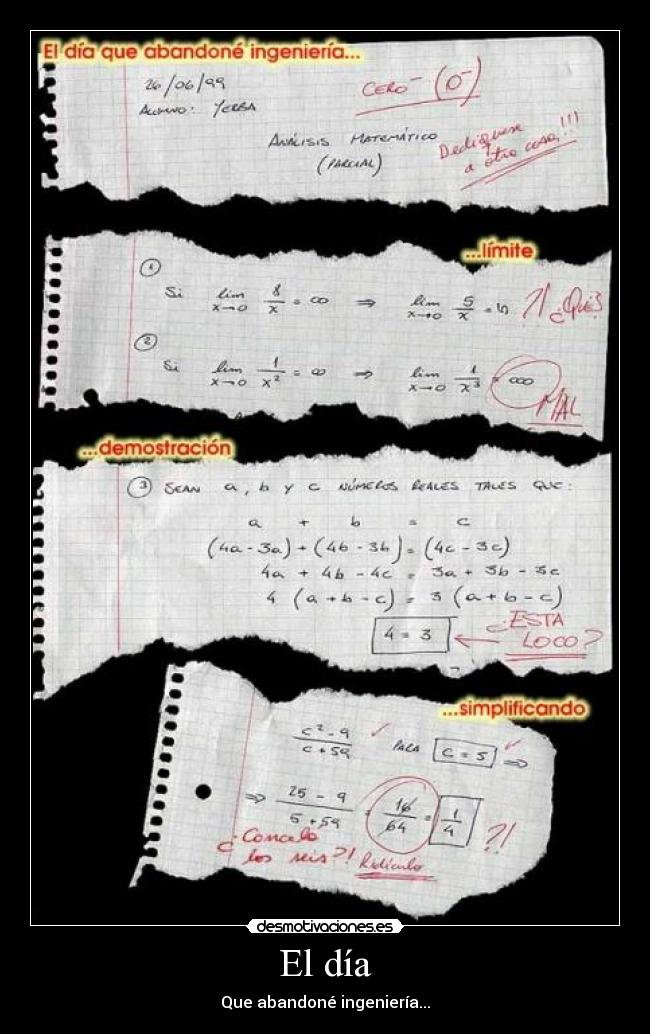 El día que abandoné ingeniería...
26/06/99
CERO⁻ (0⁻)
ALUMNO: YERBA
ANÁLISIS MATEMÁTICO
(PARCIAL)
Dediquese
a otra cosa!!!
...límite
① 
Si lim x→0 8/x = ∞ ⇒ lim x→0 5/x = ഗ ?! ¿QUÉ?
②
Si lim x→0 1/x² = ∞ ⇒ lim x→0 1/x³ = ooo
MAL
...demostración
③ SEAN a, b y c NÚMEROS REALES TALES QUE:
a + b = c
(4a-3a)+(4b-3b)=(4c-3c)
4a + 4b - 4c = 3a + 3b - 3c
4 (a+b-c) = 3 (a+b-c)
4 = 3
¿ESTA
LOCO?
...simplificando
c²-9 / c+59 PARA c=5 ⇒
⇒ 25-9 / 5+59 = 16/64 = 1/4 ?!
¿Cancelo
los seis?! Ridículo
desmotivaciones.es
El día
Que abandoné ingeniería...